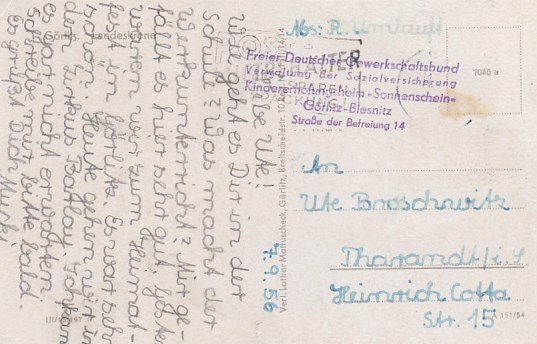 Görlitz, Landeskrone
Liebe Ute!
Wie geht es Dir in der
Schule? Was macht der
Werkunterricht? Mir ge-
fällt es hier sehr gut. Gestern
waren wir zum Heimat-
fest in Görlitz. Es war sehr
schön. Heute gehen wir in
den Zirkus Ich kann
es gar nicht erwarten.
Schreibe mir bitte bald.
Es grüßt Dich
7.9.56
Verl. Lothar Mattuscheck, Görlitz, Breitscheidstr.
Abs: R. Umlauft
ALTER
SPAREN
Freier Deutscher Gewerkschaftsbund
Verwaltung der Sozialversicherung
Kindererholungsheim »Sonnenschein«
Görlitz-Biesnitz
Straße der Befreiung 14
7046 a
An
Ute Broschwitz
Tharandt/i. S.
Heinrich Cotta
Str. 15
A 151/54